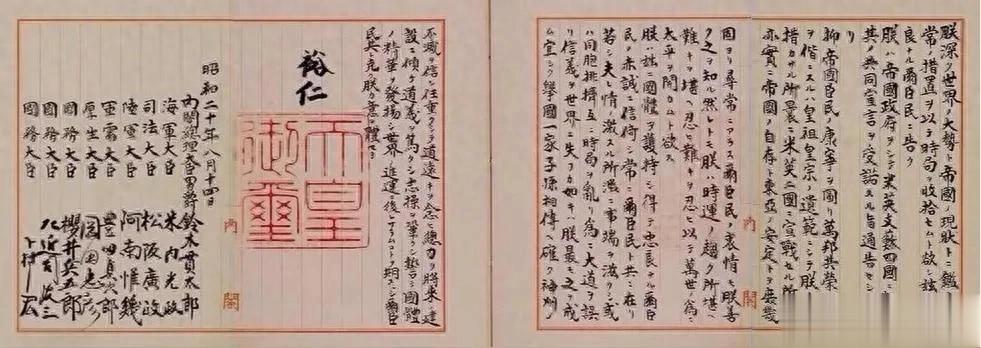 朕深ク世界ノ大勢ト帝國ノ現狀トニ鑑
常ノ措置ヲ以テ時局ヲ收拾セムト欲シ茲
良ナル爾臣民ニ告ク
朕ハ帝國政府ヲシテ米英支蘇四國ニ
其ノ共同宣言ヲ受諾スル旨通告セシ
リ
抑帝國臣民ノ康寧ヲ圖リ萬邦共榮
ヲ偕ニスルハ皇祖皇宗ノ遺範ニシテ朕
措カサル所曩ニ米英二國ニ宣戰セル所
亦實ニ帝國ノ自存ト東亞ノ安定トヲ庶幾
固ヨリ尋常ニアラス爾臣民ノ衷情モ朕善
ク之ヲ知ル然レトモ朕ハ時運ノ趨ク所堪ヘ
難キヲ堪ヘ忍ヒ難キヲ忍ヒ以テ萬世ノ爲ニ
太平ヲ開カムト欲ス
朕ハ茲ニ國體ヲ護持シ得テ忠良ナル爾臣
民ノ赤誠ニ信倚シ常ニ爾臣民ト共ニ在リ
若シ夫レ情ノ激スル所濫ニ事端ヲ滋クシ或
ハ同胞排擠互ニ時局ヲ亂リ爲ニ大道ヲ誤
リ信義ヲ世界ニ失フカ如キハ朕最モ之ヲ戒
ム宜シク擧國一家子孫相傳ヘ確ク神州
內閣
不滅ヲ信シ任重クシテ道遠キヲ念ヒ總力ヲ將來ノ建
設ニ傾ケ道義ヲ篤クシ志操ヲ鞏クシ誓テ國體
ノ精華ヲ發揚シ世界ノ進運ニ後レサラムコトヲ期スヘシ爾臣
民其レ克ク朕カ意ヲ體セヨ
裕仁
天皇御璽
內閣
昭和二十年八月十四日
內閣總理大臣男爵 鈴木貫太郎
海軍大臣 米內光政
司法大臣 松阪廣政
陸軍大臣 阿南惟幾
軍需大臣 豐田貞次郎
厚生大臣 岡田忠彥
國務大臣 櫻井兵五郎
國務大臣 左近司政三
國務大臣 下村宏